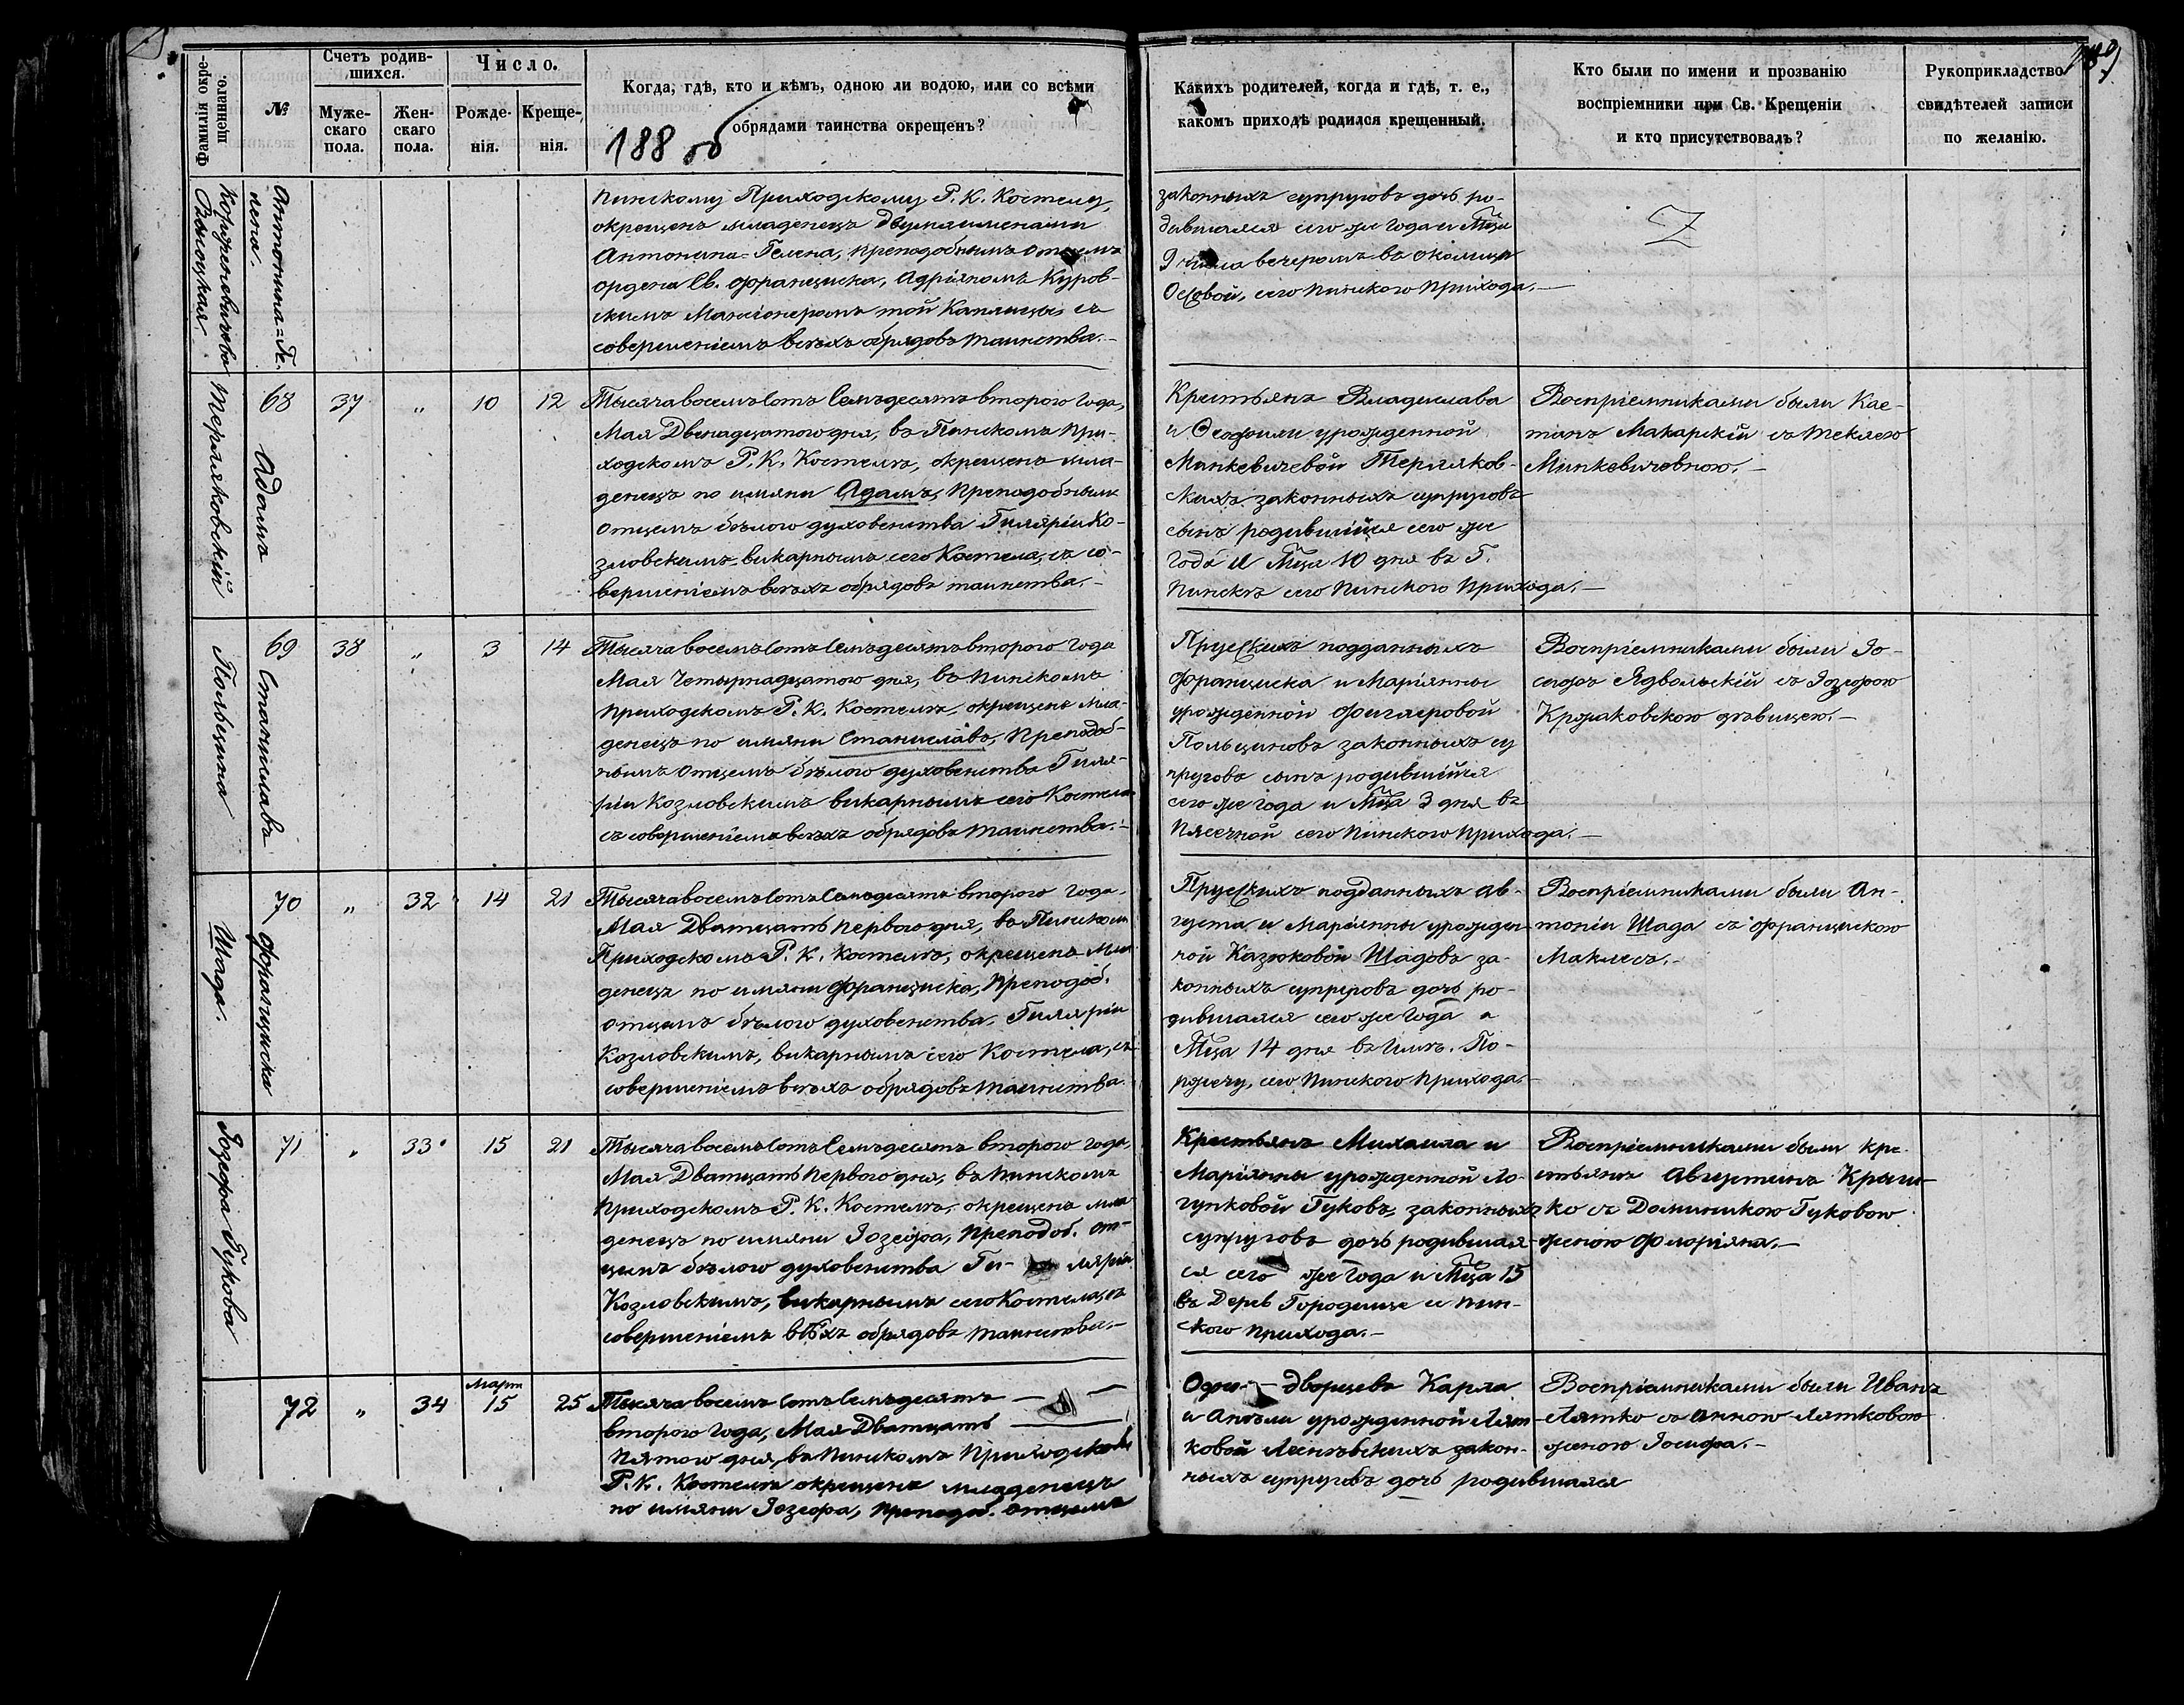 Фамилія окрещеннаго.
№
Счетъ родившихся.
Мужескаго пола.
Женскаго пола.
Число.
Рожденія.
Крещенія.
Когда, гдѣ, кто и кѣмъ, одною ли водою, или со всѣми
обрядами таинства окрещенъ?
188 об
Какихъ родителей, когда и гдѣ, т. е.,
какомъ приходѣ родился крещенный.
Кто были по имени и прозванію
воспріемники при Св. Крещеніи
и кто присутствовалъ?
Рукоприкладство
свидѣтелей записи
по желанію.
189
Антонина=Ге-
лена.
Высоцкая
Пинскому Приходскому Р. К. Костелу,
окрещенъ младенецъ двумя именами
Антонина=Гелена, преподобнымъ отцемъ
ордена Св. Франциска, Адріяномъ Куров-
скимъ Мансіонеромъ той Каплицы, съ
совершеніемъ всѣхъ обрядовъ таинства.–
законныхъ супруговъ дочь ро-
дившаяся сего же года и Мца
9 числа вечеромъ въ околицы
Осовой, сего Пинского прихода.–
Z
Терляковскій
68
Адамъ
37
"
10
12
Тысяча восемъ сотъ Семъдесятъ второго года,
Мая Двенадцатого дня, въ Пинскомъ При-
ходскомъ Р. К. Костелѣ, окрещенъ мла-
денецъ по имяни Адамъ, Преподобнымъ
отцемъ бѣлого духовенства Гиляріи Ко-
зловскимъ, викарнымъ сего Костела, съ со-
вершеніемъ всѣхъ обрядовъ таинства.–
Крестьянъ Владислава
и Ѳеофили урожденной
Манкевичевой Терляков-
скихъ законныхъ супруговъ
сынъ родившійся сего же
года и Мца 10 дня въ Г.
Пинскѣ сего Пинского прихода.–
Воспріемниками были Кае-
танъ Макарскій съ Теклею
Минкевичевною.–
Польцина
69
Станиславъ
38
"
3
14
Тысяча восемъ сотъ Семъдесятъ второго года
Мая Четырнадцатого дня, въ Пинскомъ
приходскомъ Р. К. Костелѣ, окрещенъ мла-
денецъ по имяни Станиславъ, Преподоб-
нымъ отцемъ бѣлого духовенства Гиля-
ріи Козловскимъ викарнымъ сего Костела
съ совершеніемъ всѣхъ обрядовъ таинства.–
Прусскихъ подданныхъ
Франциска и Маріянны
урожденной Фиглеровой
Польциновъ законныхъ су
пруговъ сынъ родившійся
сего же года и Мца 3 дня въ
Плесчной сего Пинского прихода.–
Воспріемниками были Іо-
сифъ Ядвольскій съ Іозефою
Кржаковскою дѣвицею.–
Шада.
70
Франциска
"
32
14
21
Тысяча восемъ сотъ Семъдесятъ второго года
Мая Двадцать Первого дня, въ Пинскомъ
Приходскомъ Р. К. Костелѣ, окрещенъ мла
денецъ по имяни Франциска, Преподоб.
отцемъ бѣлого духовенства, Гиляріи
Козловскимъ, викарнымъ сего Костела, съ
совершеніемъ всѣхъ обрядовъ таинства.
Прусскихъ подданныхъ Ав-
густа и Маріянны урожден-
ной Казюковой Шадовъ за-
конныхъ супруговъ дочь ро-
дившаяся сего же года и
Мца 14 дня въ Имѣ. По-
рѣчу, сего Пинского Прихода.–
Воспріемниками были Ан-
тоніи Шада съ Францискою
Маклесъ.–
Іозефа Гукова
71
"
33
15
21
Тысяча восемъ сотъ Семъдесятъ второго года,
Мая Двадцать Первого дня, въ Пинскомъ
Приходскомъ Р. К. Костелѣ, окрещенъ мла
денецъ по имяни Іозефа, Преподоб. от-
цемъ бѣлого духовенства Ги- ляріи
Козловскимъ, викарнымъ сего Костела, съ
совершеніемъ всѣхъ обрядовъ таинства.–
Крестьянъ Михаила и
Маріянны урожденной Ло-
гунковой Гуковъ, законныхъ
супруговъ дочь родившая-
ся сего же года и Мца 15
въ Дерев Городище с Пин-
ского прихода.–
Воспріемниками были кре-
стьянъ Августинъ Краш-
ко съ Доминикою Гуковою
женою Флоріяна.–
72
"
34
Март
15
25
Тысяча восемъ сотъ Семъдесятъ –
второго года, Мая Двадцать
Пятого дня, въ Пинскомъ Приходскомъ
Р. К. Костелѣ окрещенъ младенецъ
по имяни Іозефа, Преподоб. отцемъ
Одно- – дворцевъ Карла
и Анѣли урожденной Лят-
ковой законн-
ныхъ супруговъ дочь родившаяся
Воспріемниками были Иванъ
Лятко съ Анною Лятковою
женою Іосифа.–